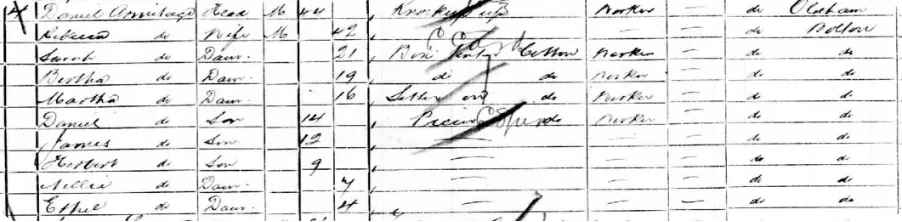 4 Daniel Armitage Head M 44 Knocker up Worker — do Oldham
Rebecca do Wife M 42 — do Bolton
Sarah do Daur 21 Box Cotton Worker — do do
Bertha do Daur 19 do do Worker — do do
Martha do Daur 16 Setter on do Worker — do do
Daniel do Son 14 Piecer do Worker — do do
James do Son 12 — — — do do
Herbert do Son 9 — — — do do
Nellie do Daur 7 — — — do do
Ethel do Daur 4 — — — do do